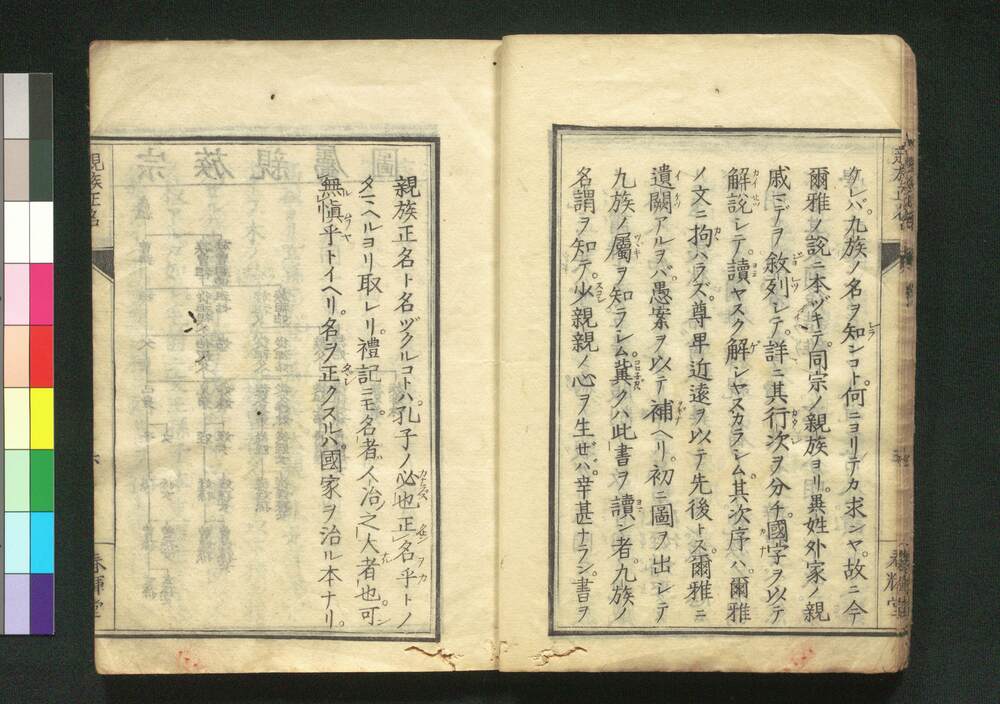 クレバ九族ノ名ヲ知ンコト。何ニヨリテカ求ンヤ。故ニ今
爾雅ノ説ニ本ヅキテ。同宗ノ親族ヨリ。異姓外家ノ親
戚ニデヲ敘列シテ。詳ニ其行次ヲ分チ。國字ヲ以テ
解説シテ。讀ヤスク解シヤスカラシム。其次序ハ。爾雅
ノ文ニ拘ハラズ。尊卑近遠ヲ以テ先後トス。爾雅ニ
遺闕アルヲバ。愚案ヲ以テ補ヘリ。初ニ圖ヲ出シテ
九族ノ屬ヲ知ラシム。冀クハ此書ヲ讀ン者。九族ノ
名謂ヲ知テ。少親親ノ心ヲ生ゼバ。幸甚ナラン。書ヲ
親族正名ト名ヅクルコトハ。孔子ノ必也正名乎トノ
タマヘルヨリ取レリ。禮記ニモ。名者人治之大者也。可
無愼乎トイヘリ。名ヲ正クスルハ。國家ヲ治ル本ナリ。
親族正名
春輝堂